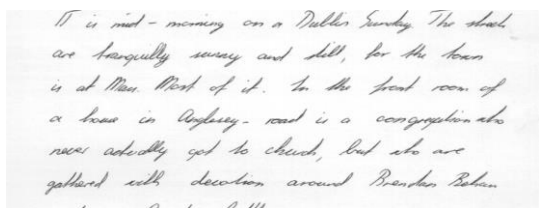 IT is mid - morning on a Dublin Sunday. The streets
are tranquilly sunny and still, for the town
is at Mass. Most of it. In the front room of
a house in Anglesey - road is a congregation who
never actually got to church, but who are
gathered with devotion around Brendan Behan